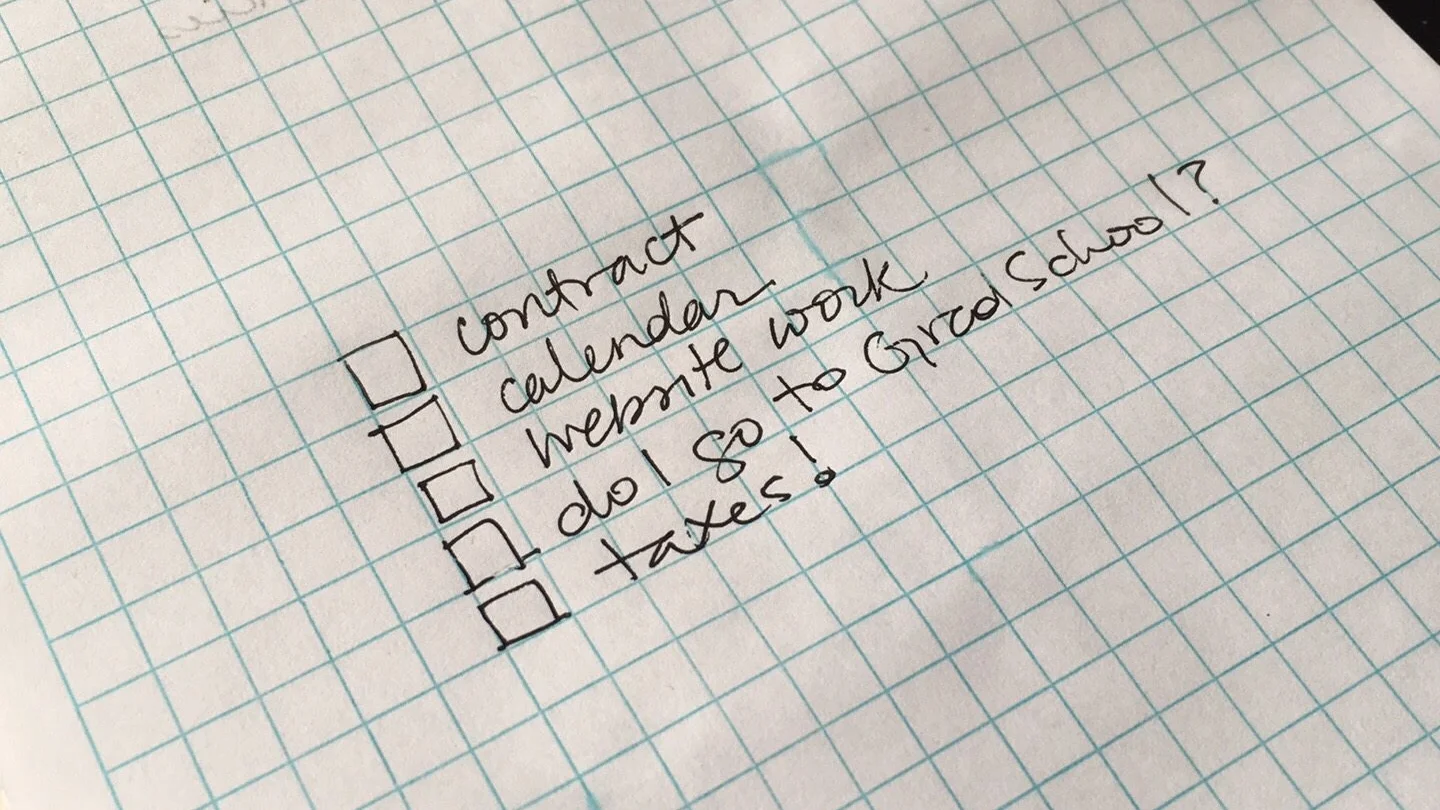 contract
calendar
website work
do I go to Grad School?
taxes!